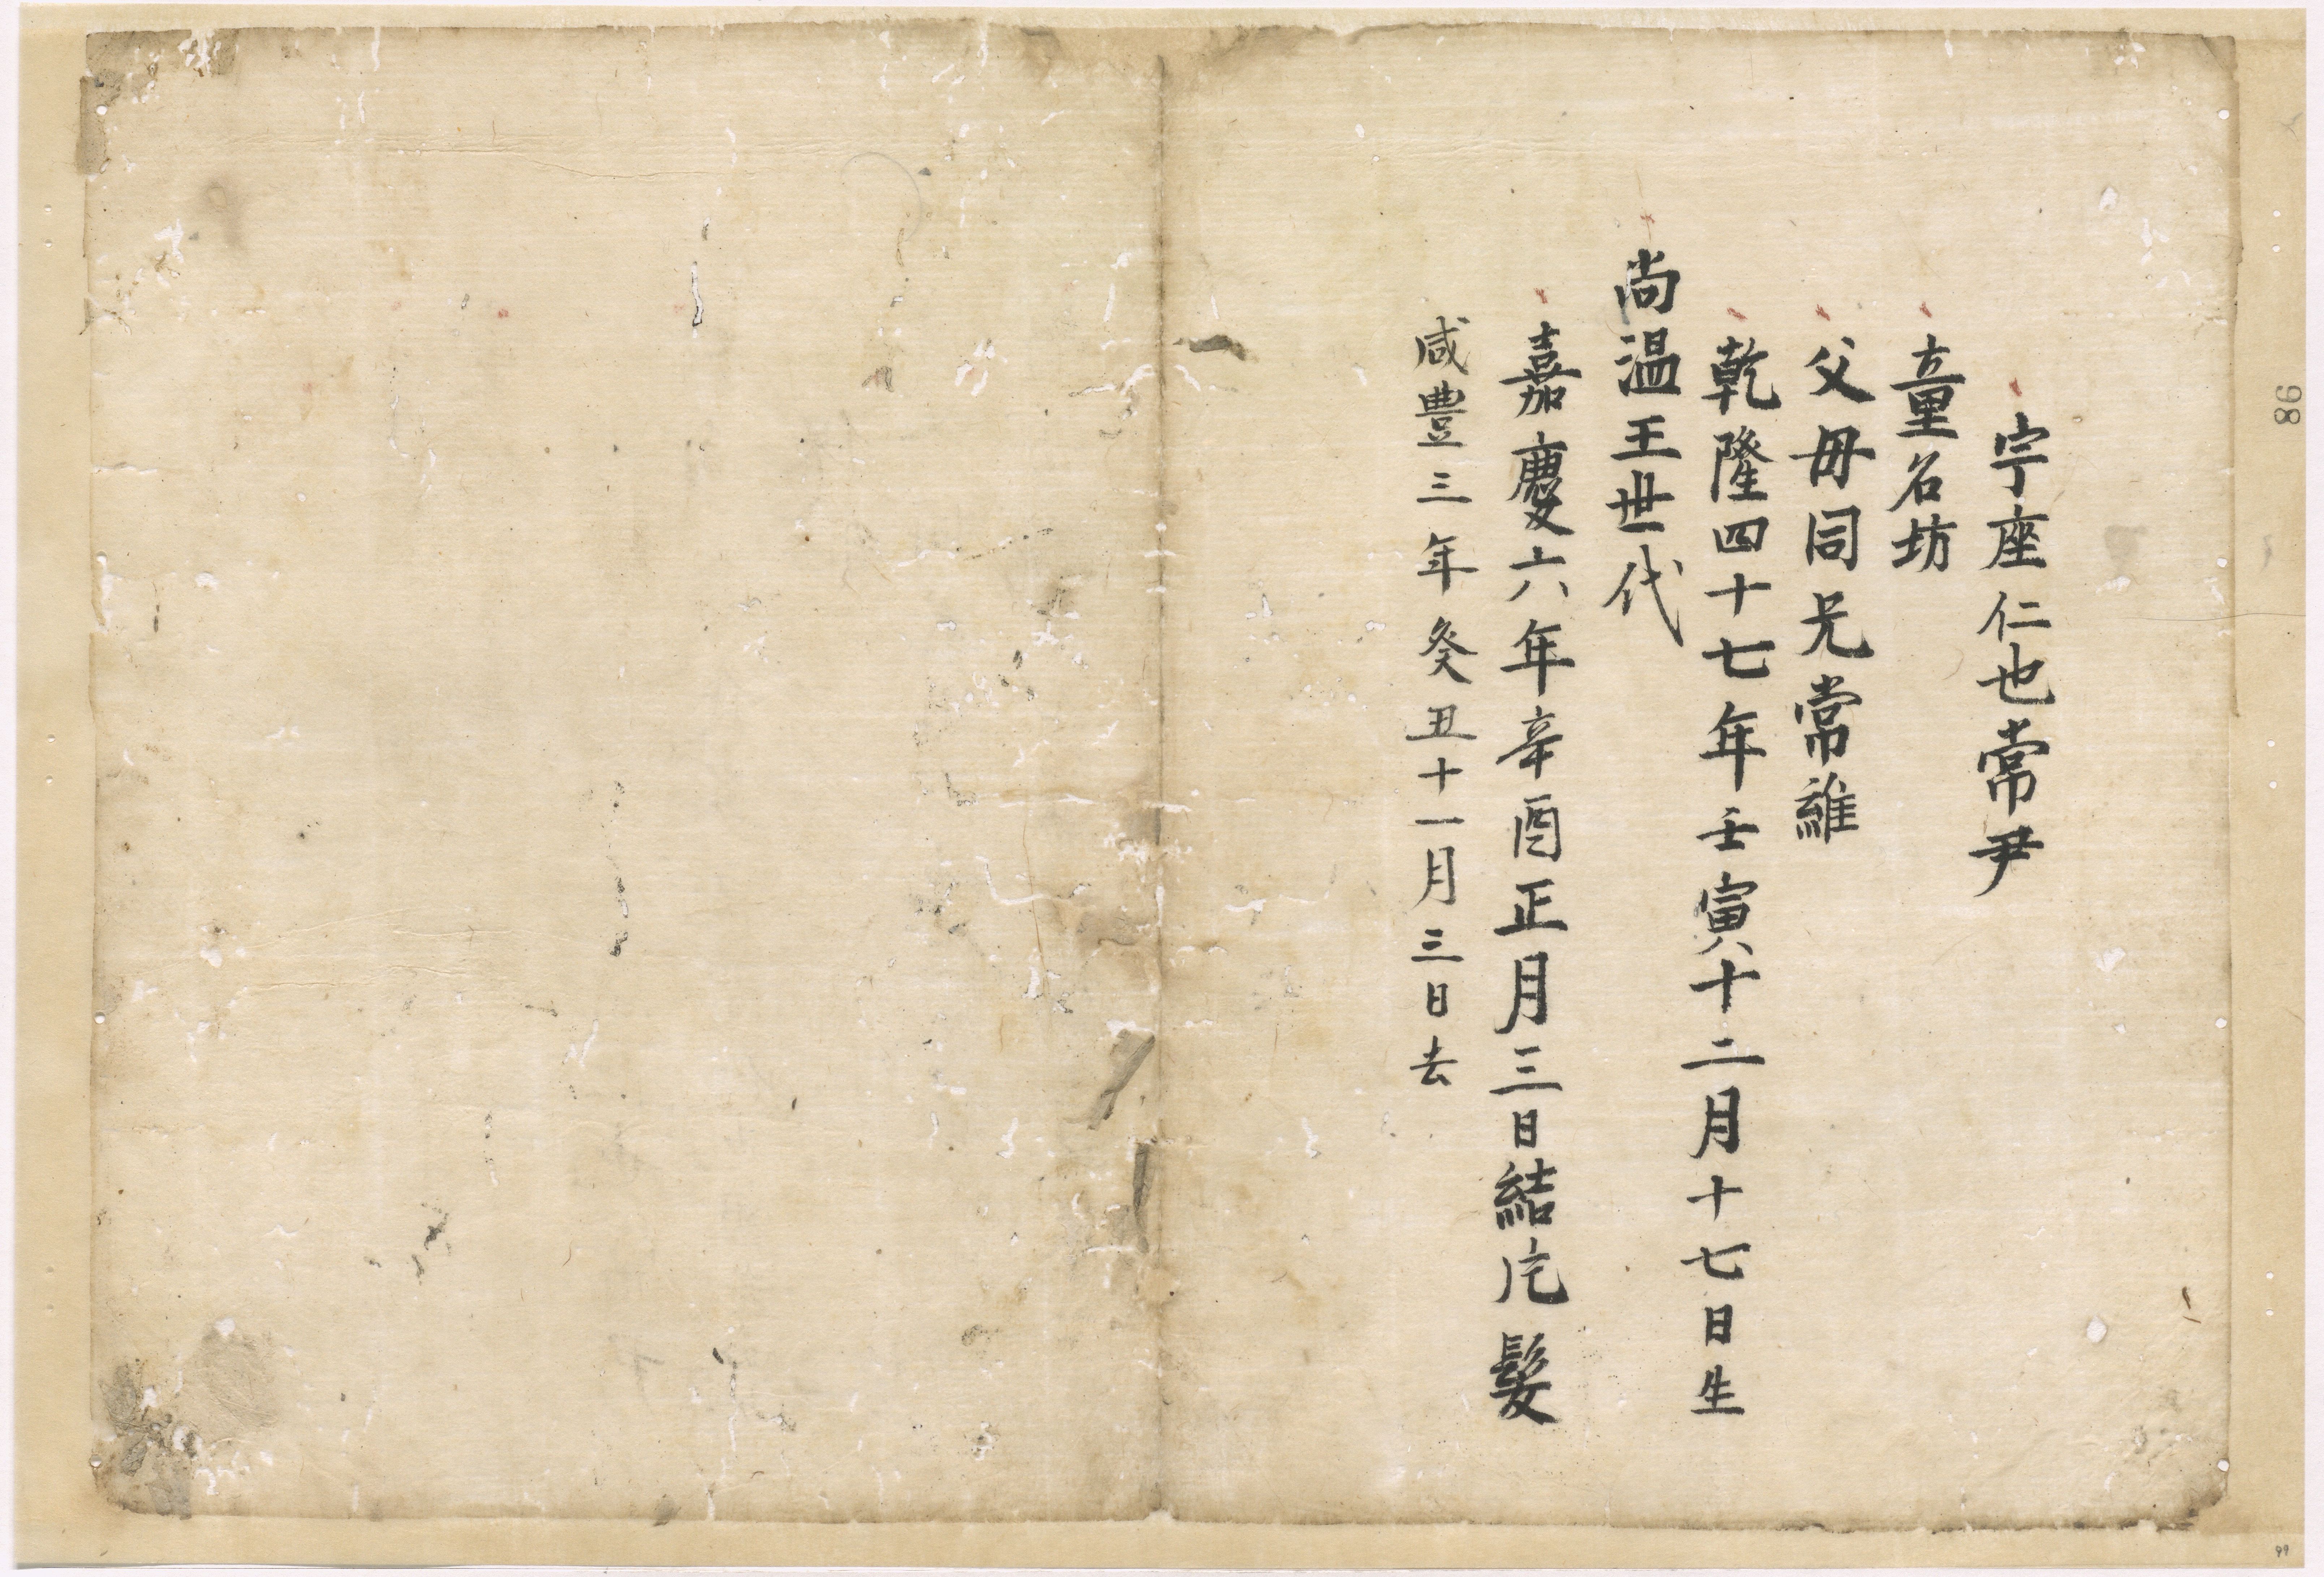 宇座仁也常尹
童名坊
父母同兄常維
乾隆四十七年壬寅十二月十七日生
尚温王世代
嘉慶六年辛酉正月三日結片髪
咸豊三年癸丑十一月三日去
98
99